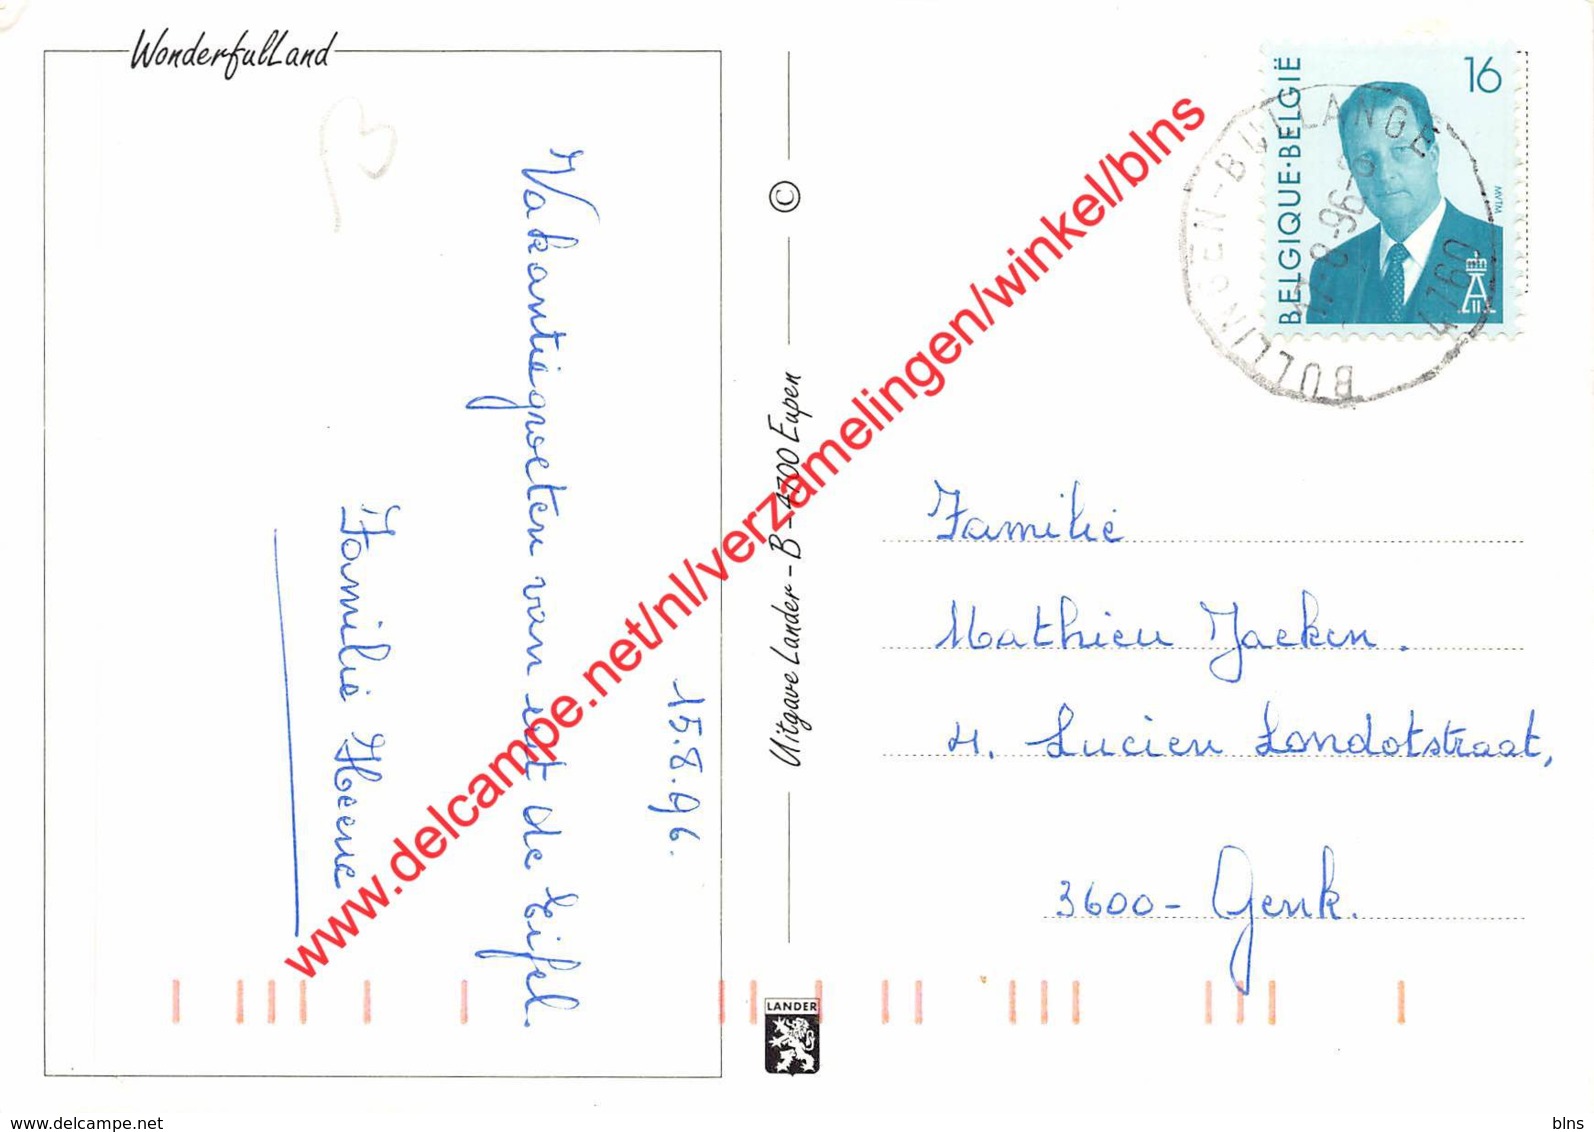 WonderfulLand
15.8.96.
Vakantiegroeten van uit de Eifel.
Familie Heene
Uitgave Lander - B - 4700 Eupen
©
LANDER
BELGIQUE·BELGIË
16
MVTM
BULLINGEN-BULLANGE
-8-96-8
4760
Familie
Mathieu Jaeken.
4. Lucien Londotstraat,
3600- Genk.
www.delcampe.net/nl/verzamelingen/winkel/blns
www.delcampe.net
blns